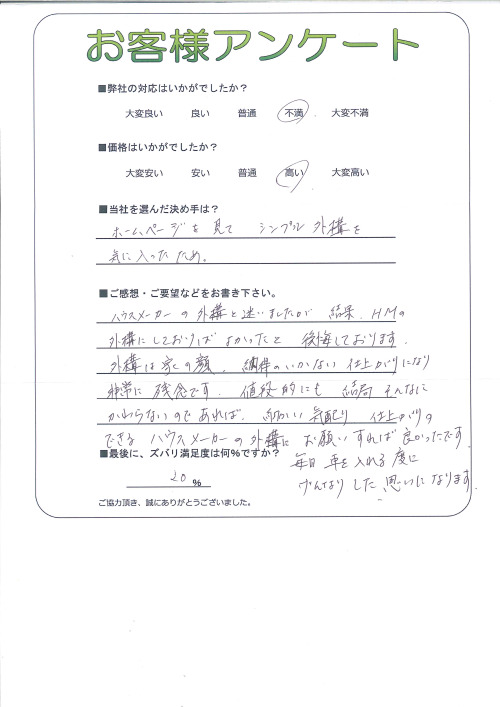 お客様アンケート
■弊社の対応はいかがでしたか？
大変良い 良い 普通 不満 大変不満
■価格はいかがでしたか？
大変安い 安い 普通 高い 大変高い
■当社を選んだ決め手は？
ホームページを見て シンプル外構を
気に入ったため。
■ご感想・ご要望などをお書き下さい。
ハウスメーカーの外構と迷いましたが 結果、HMの
外構にしておけばよかったと 後悔しております。
外構は家の顔、納得のいかない仕上がりになり
非常に残念です。値段的にも 結局そんなに
かわらないのであれば、細かい気配り 仕上がりの
できる ハウスメーカーの外構に お願いすれば良かったです。
毎日 車を入れる度に
げんなりした思いになります。
■最後に、ズバリ満足度は何%ですか？
20 %
ご協力頂き、誠にありがとうございました。